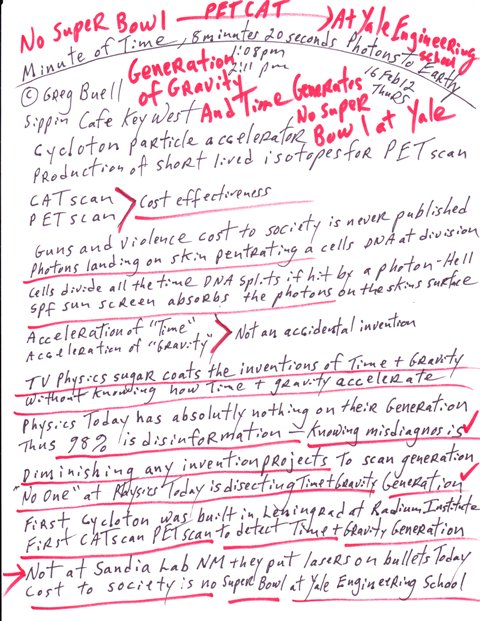 No Super Bowl — PET CAT → At Yale Engineering School
Minute of Time, 8 minutes 20 seconds Photons to Earth
1:08pm
2:11 pm
16 Feb 12
Thurs
© Greg Buell
Generation of Gravity
And Time Generates
No Super Bowl at Yale
Sippin Cafe Key West
Cycloton particle accelerator
Production of short lived isotopes for PET scan
CAT scan
PET scan > Cost effectiveness
Guns and Violence cost to society is never published
Photons landing on skin pentrating a cells DNA at division
Cells divide all the time DNA splits if hit by a photon-Hell
SPF sun screen absorbs the photons on the skins surface
Acceleration of "Time"
Acceleration of "Gravity" > Not an accidental invention
TV Physics sugar coats the inventions of Time + Gravity
without knowing how Time + gravity accelerate
Physics Today has absolutly nothing on their Generation
Thus 98% is disinformation — Knowing misdiagnosis ✓
Diminishing any invention projects to scan generation
"No One" at Physics Today is disecting Time + Gravity Generation ✓
First Cycloton was built in Leningrad at Radium Institute
First CATscan PETscan to detect Time + Gravity Generation
→ Not at Sandia Lab NM they put lasers on bullets Today
Cost to society is no Super Bowl at Yale Engineering School